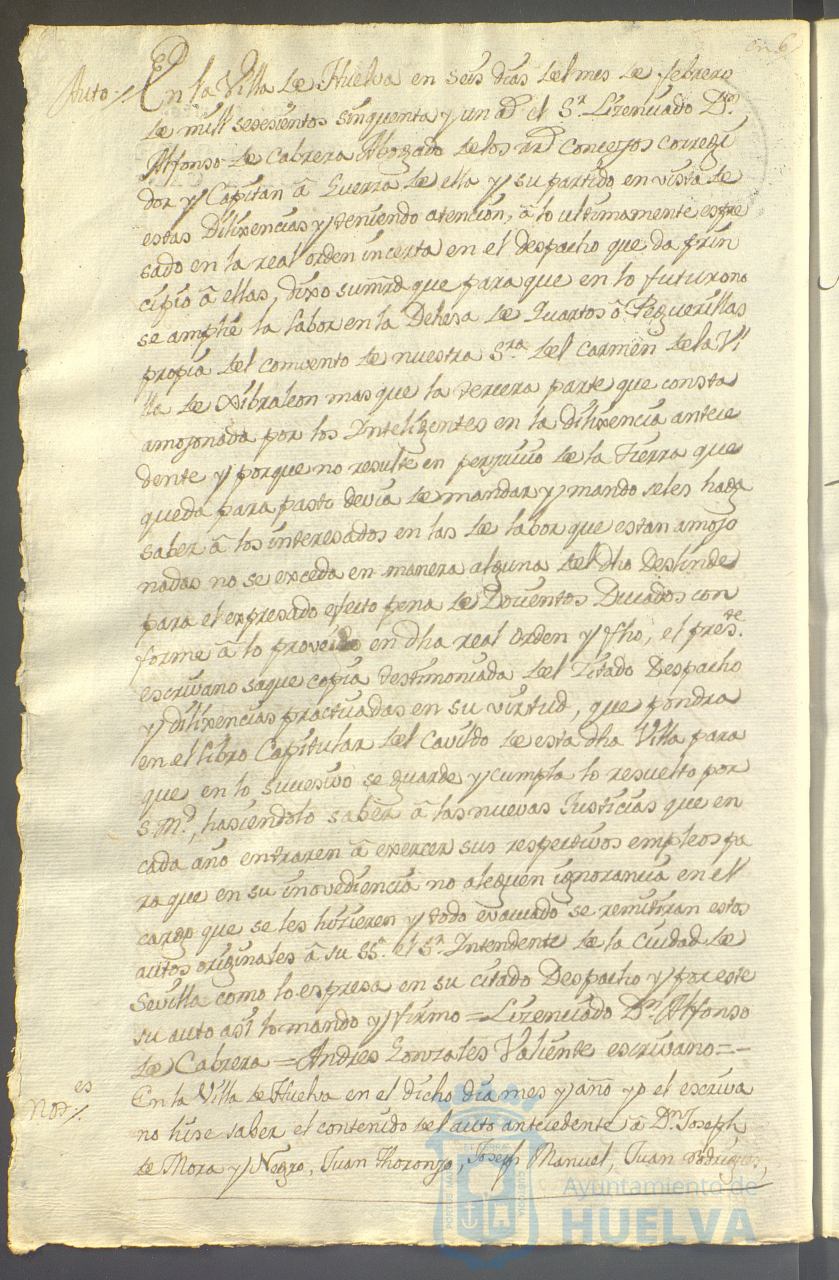 Auto // En la Villa de Huelva en seis dias del mes de febrero
de mill setesientos sinquenta y un aᵈ el Sʳ. Lizenciado Dⁿ.
Alffonso de Cabrera Abogado de los rrˢ Concejos corregi
dor y Capitan â Guerra de ella y su partido en vista de
estas Dilixencias y teniendo atencion, â lo ultimamente espre
sado en la real orden incerta en el despacho que da prin
cipio â ellas, dixo sumrd que para que en lo futuro no
se amplie la labor en la Dehesa de Quartos ô Peguerillas
propia del comvento de nuestra Sʳᵃ. del Carmen de la Vi
lla de Xibraleon mas que la tercera parte que consta
amojonada por los Inteligentes en la dilixencia antece
dente y porque no resulte en perjuicio de la Tierra que
queda para pasto devia de mandar y mando seles haga
saber â los interesados en las de labor que estan amojo
nadas no se exceda en manera alguna del dho Deslinde
para el expresado efecto pena de Docientos Ducados con
forme â lo proveido en dha real orden y fho, el presᵗᵉ.
escrivano saque copia testimoniada del Zitado Despacho
y dilixencias practicadas en su virtud, que pondra
en el libro Capitular del Cavildo de esta dha Villa para
que en lo sucesivo se guarde y cumpla lo resuelto por
S. Mᵈ, hasiendolo saber â las nuevas Justicias que en
cada año entraren â exercer sus respectivos empleos pa
ra que en su inovediencia no aleguen ignorancia en el
cargo que se les hisieren y todo evacuado se remitiran estos
autos originales â su SSᵃ. el Sʳ. Intendente de la Ciudad de
Sevilla como lo espresa en su citado Despacho y por este
su auto asi lo mando y firmo = Lizenciado Dⁿ Alffonso
de Cabrera = Andres Gonzales Valiente escrivano = -
Notᵉˢ /. En la Villa de Huelva en el dicho dia mes y año yo el escriva
no hise saber el contenido del auto antecedente â Dⁿ. Joseph
de Mora y Negro, Juan Thoronjo, Joseph Manuel, Juan rodrigues,
Ayuntamiento de
HUELVA